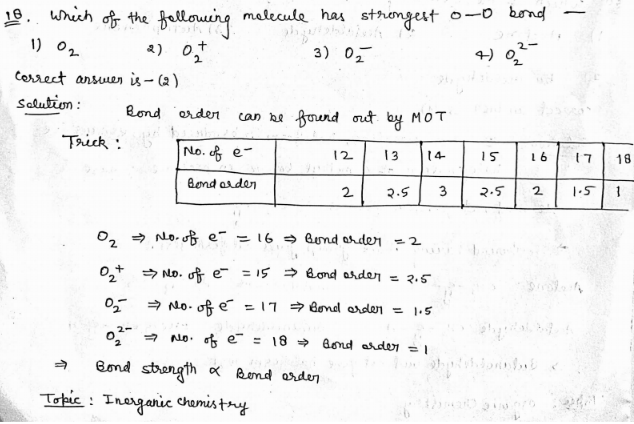 18. Which of the following molecule has strongest O–O bond —
1) O₂ 2) O₂⁺ 3) O₂⁻ 4) O₂²⁻
Correct answer is – (2)
Solution :
Bond order can be found out by MOT
Trick :
No. of e⁻ 12 13 14 15 16 17 18
Bond order 2 2.5 3 2.5 2 1.5 1
O₂ ⇒ No. of e⁻ = 16 ⇒ Bond order = 2
O₂⁺ ⇒ No. of e⁻ = 15 ⇒ Bond order = 2.5
O₂⁻ ⇒ No. of e⁻ = 17 ⇒ Bond order = 1.5
O₂²⁻ ⇒ No. of e⁻ = 18 ⇒ Bond order = 1
⇒ Bond strength ∝ Bond order
Topic : Inorganic chemistry